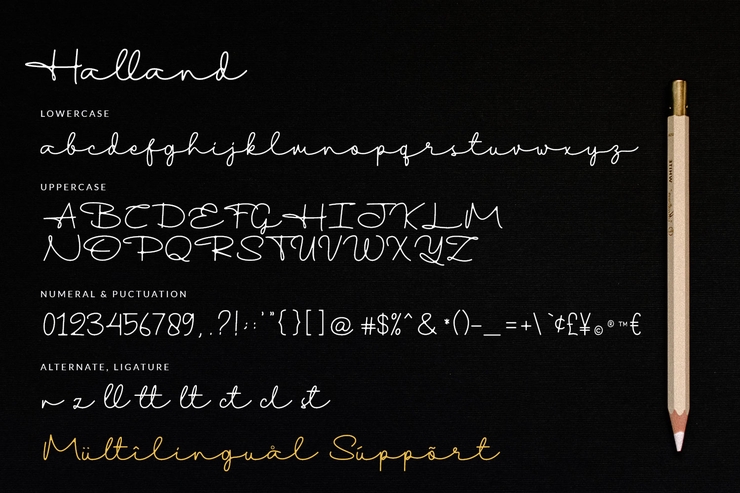 Halland
LOWERCASE
abcdefghijklmnopqrstuvwxyz
UPPERCASE
ABCDEFGHIJKLM
NOPQRSTUVWXYZ
NUMERAL & PUCTUATION
0123456789,.?!;:'"{}[]@ #$%^& *()-_=+\`¢£¥©®™€
ALTERNATE, LIGATURE
r z ll tt lt ct cl st
Mültîlinguål Súppõrt